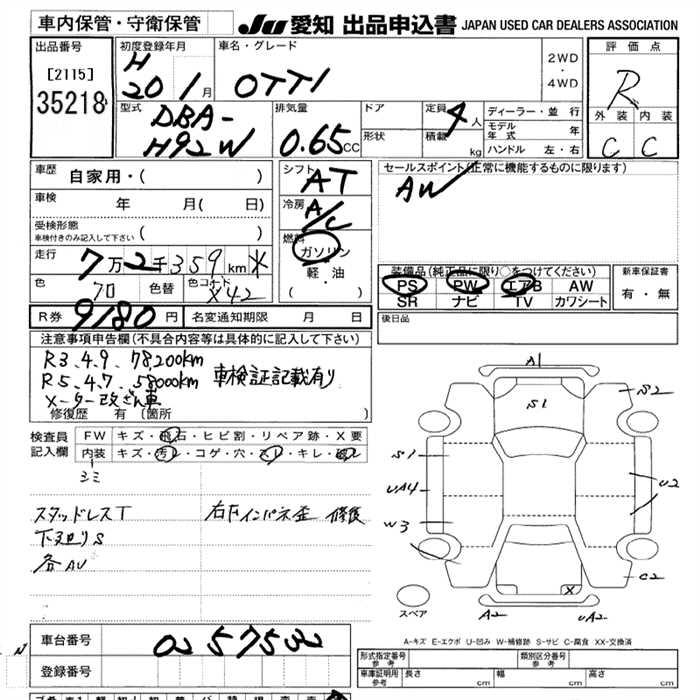 車内保管・守衛保管 JU 愛知 出品申込書 JAPAN USED CAR DEALERS ASSOCIATION
出品番号
[2115]
35218
初度登録年月
H
20 1月
車名・グレード
OTTI
2WD
・
4WD
評価点
R
外装 内装
C C
型式
DBA-
H92W
排気量
0.65CC
ドア
形状
定員
4人
積載
kg
ディーラー・並行
モデル年式 年
ハンドル 左・右
車歴
自家用・( )
車検
年 月( 日)
受検形態
車検付きのみ記入して下さい ( )
走行
7万2千359km
色
70
色替
色コード
X42
シフト
AT
冷房
A/C
燃料
ガソリン
軽・油
( ・ )
セールスポイント(正常に機能するものに限ります)
AW
装備品(純正品に限り○をつけてください)
PS PW エアB AW
SR ナビ TV カワシート
新車保証書
有・無
R券 9180円 名変通知期限 月 日
後日品
注意事項申告欄(不具合内容等は具体的に記入して下さい)
R3.4.9. 78,200km
R5.4.7. 58000km 車検証記載有り
メーター改ざん車
修復歴 有 (箇所 )
検査員
記入欄
FW キズ・飛石・ヒビ割・リペア跡・X要
内装 キズ・汚レ・コゲ・穴・スレ・キレ・
シミ
スタッドレスT
下廻りS
各AU
右Fインパネ歪 修良
A1
S1
S2
S1
UA4
W3
U2
C2
X
A2
UA2
スペア
A-キズ E-エクボ U-凹み W-補修跡 S-サビ C-腐食 XX-交換済
車台番号
登録番号
形式指定番号
参考
類別区分番号
参考
車庫証明用
参考
長さ cm 幅 cm 高さ cm